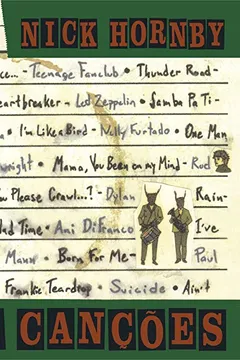 NICK HORNBY
ce... - Teenage Fanclub • Thunder Road -
eartbreaker - Led Zeppelin • Samba Pa Ti -
a • I'm Like a Bird - Nelly Furtado • One Man
wright • Mama, You Been on my Mind - Rod
ou Please Crawl...? - Dylan Rain-
nd Time • Ani DiFranco I've
Mann • Born For Me - Paul
Frankie Teardrop • Suicide • Ain't
CANÇÕES